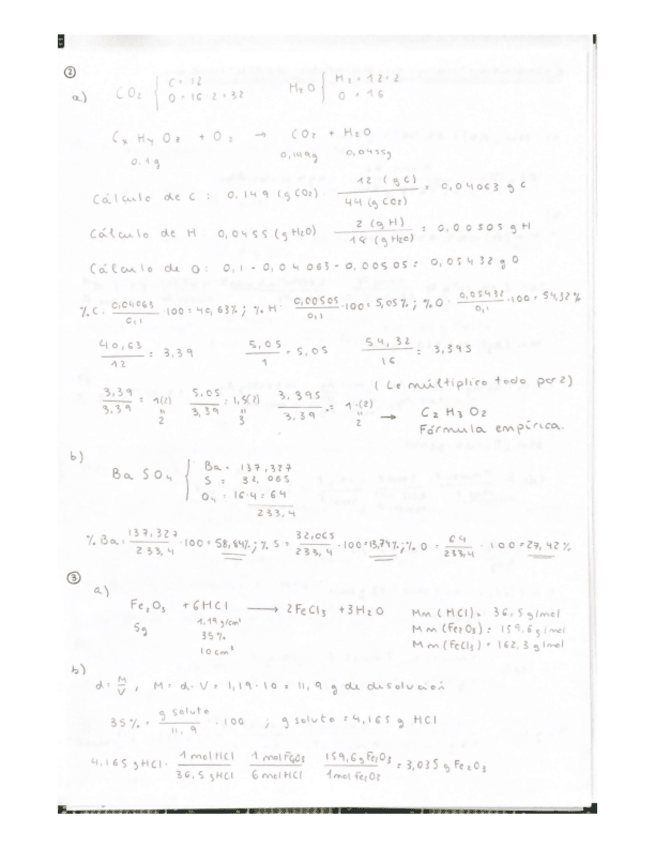 ②
a) CO₂ { C = 12 H₂O { H₂ = 1·2 = 2
O = 16·2 = 32 O = 16
CxHyOz + O₂ → CO₂ + H₂O
0.1g 0,149g 0,0455g
Cálculo de C: 0,149 (g CO₂) · 12 (g C) / 44 (g CO₂) = 0,04063 g C
Cálculo de H: 0,0455 (g H₂O) · 2 (g H) / 18 (g H₂O) = 0.00505 g H
Cálculo de O: 0,1 - 0,04063 - 0,00505 = 0,05432 g O
% C = 0,04063 / 0,1 · 100 = 40,63%; % H = 0,00505 / 0,1 · 100 = 5,05%; % O = 0,05432 / 0,1 · 100 = 54,32%
40,63 / 12 = 3,39 5,05 / 1 = 5,05 54,32 / 16 = 3,395
(Lo múltiplico todo por 2)
3,39 / 3,39 = 1(2) = 2 5,05 / 3,39 = 1,5(2) = 3 3,395 / 3,39 = 1·(2) = 2 → C₂H₃O₂
Fórmula empírica.
b)
BaSO₄ { Ba = 137,327
S = 32,065
O₄ = 16·4 = 64
233,4
% Ba = 137,327 / 233,4 · 100 = 58,84%; % S = 32,065 / 233,4 · 100 = 13,74%; % O = 64 / 233,4 · 100 = 27,42%
③
a)
Fe₂O₃ + 6HCl → 2FeCl₃ + 3H₂O Mm (HCl) = 36,5 g/mol
5g 1.19 g/cm³ Mm (Fe₂O₃) = 159,6 g/mol
35% Mm (FeCl₃) = 162,3 g/mol
10 cm³
b)
d = M/V, M = d·V = 1,19·10 = 11,9 g de disolución
35% = g soluto / 11,9 · 100 ; g soluto = 4,165 g HCl
4,165 g HCl · 1 mol HCl / 36,5 g HCl 1 mol Fe₂O₃ / 6 mol HCl 159,6 g Fe₂O₃ / 1 mol Fe₂O₃ = 3,035 g Fe₂O₃